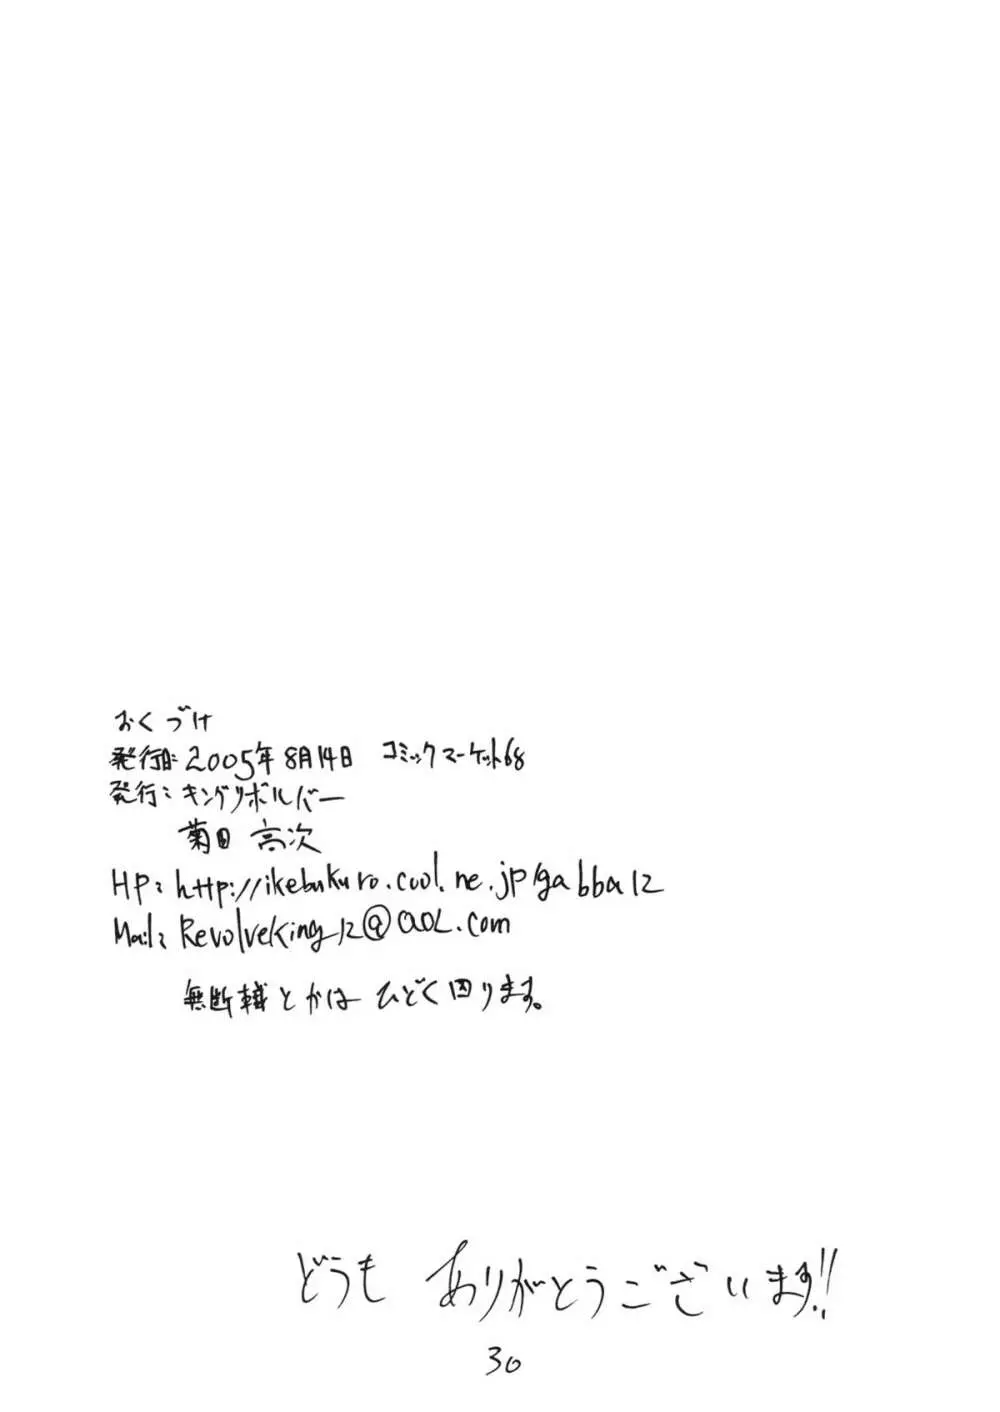 おくづけ
発行日:2005年8月14日 コミックマーケット68
発行:キングリボルバー
菊田 高次
HP:http://ikebukuro.cool.ne.jp/gabba12
Mail:Revolveking12@aol.com
無断転載とかは ひどく困ります。
どうも ありがとうございます!!
30